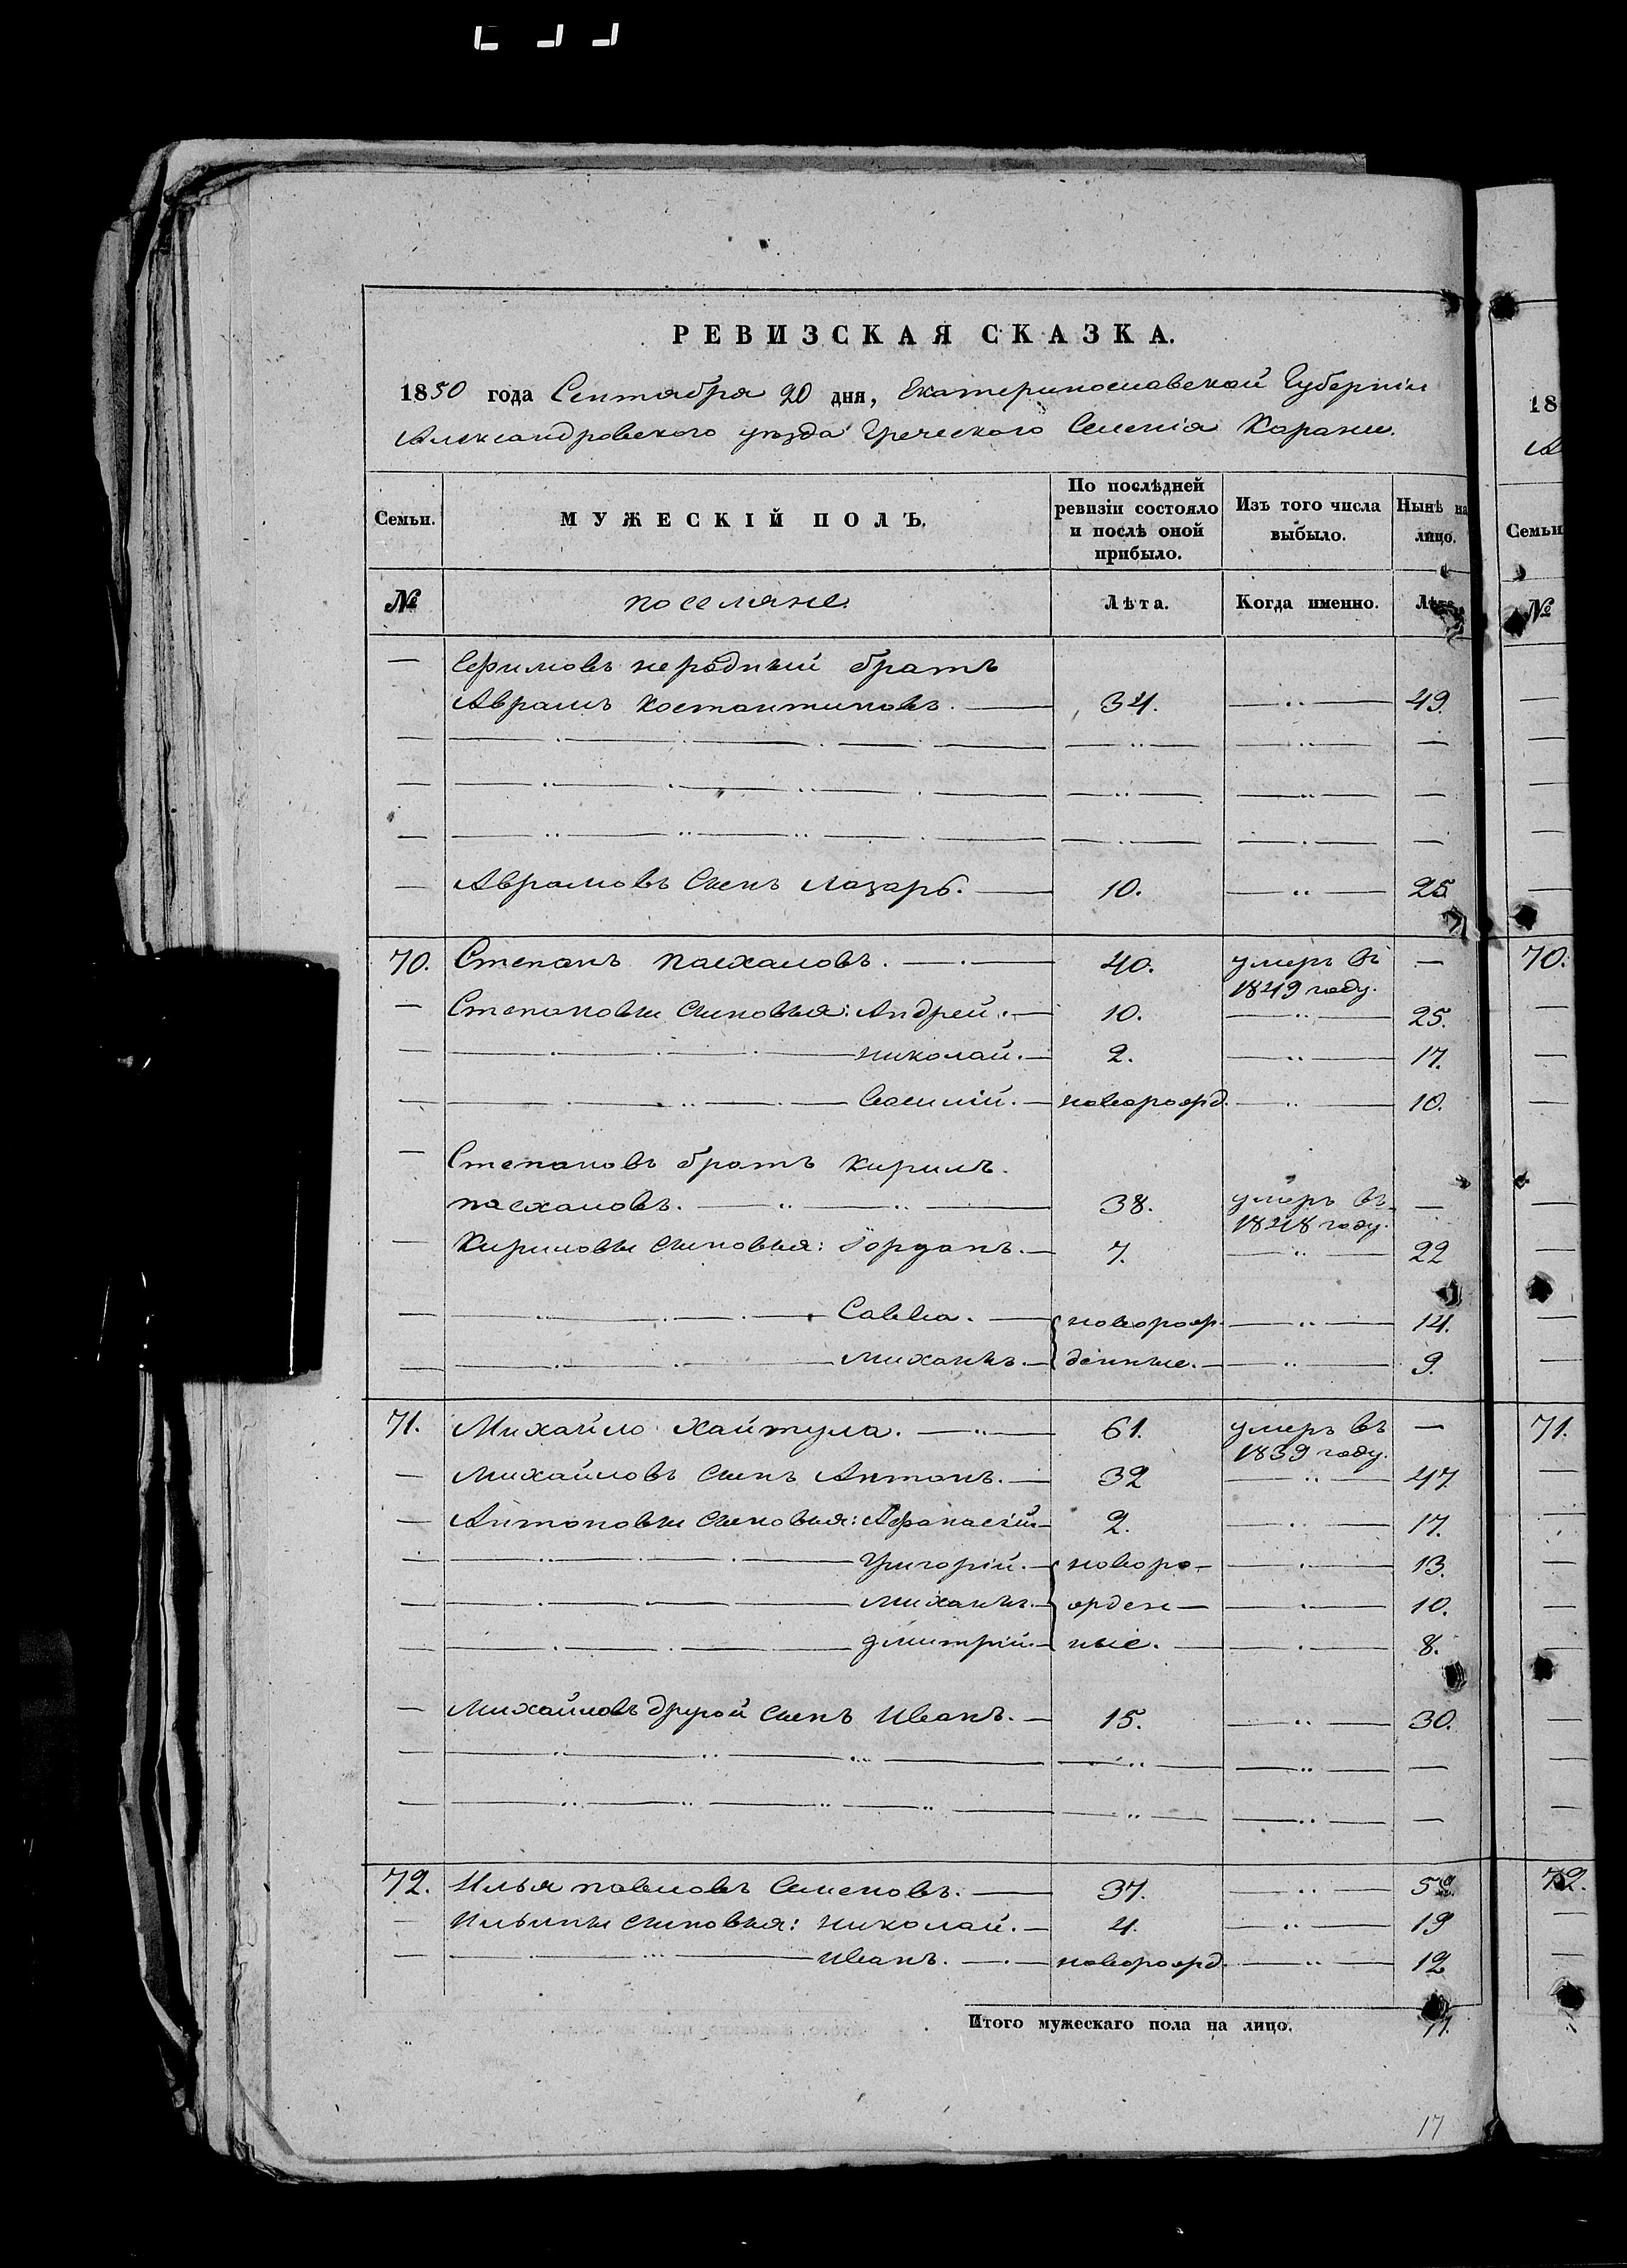 РЕВИЗСКАЯ СКАЗКА.
1850 года Сентября 20 дня, Екатеринославской Губерніи
Александровского уезда Греческого Селенія Карани.
Семьи. МУЖЕСКІЙ ПОЛЪ. По послѣдней ревизіи состояло и послѣ оной прибыло. Изъ того числа выбыло. Нынѣ на лицо.
№ поселяне. Лѣта. Когда именно. Лѣта.
— Ефимовъ неродный братъ
Аврамъ Костантиновъ. 34. — 49.
— Аврамовъ Сынъ Лазарь. 10. — 25
70. Степанъ Пасхаловъ. 40. умеръ въ —
1849 году.
— Степановы сыновья: Андрей. 10. — 25.
— Николай. 2. — 17.
— Василій. новорожд. — 10.
— Степановъ братъ Кирилъ
Пасхаловъ. 38. умеръ въ —
1848 году.
— Кириловы сыновья: Іорданъ. 7. — 22
— Савва. новорож- — 14.
— Михаилъ. денные. — 9.
71. Михайло Хайтула. 61. умеръ въ —
1839 году.
— Михайловъ сынъ Антонъ. 32 — 47
— Антоновы сыновья: Афанасій 2. — 17.
— Григорій. новоро- — 13.
— Михаилъ. жден- — 10.
— Дмитрій. ные. — 8.
— Михайловъ другой сынъ Иванъ. 15. — 30.
72. Илья Павловъ Семеновъ. 37. —
— Ильины сыновья: Николай. 4. — 19
— Иванъ. новорожд. — 12
Итого мужескаго пола на лицо. 17.
17
18
Семьи
№
70.
71.
72.